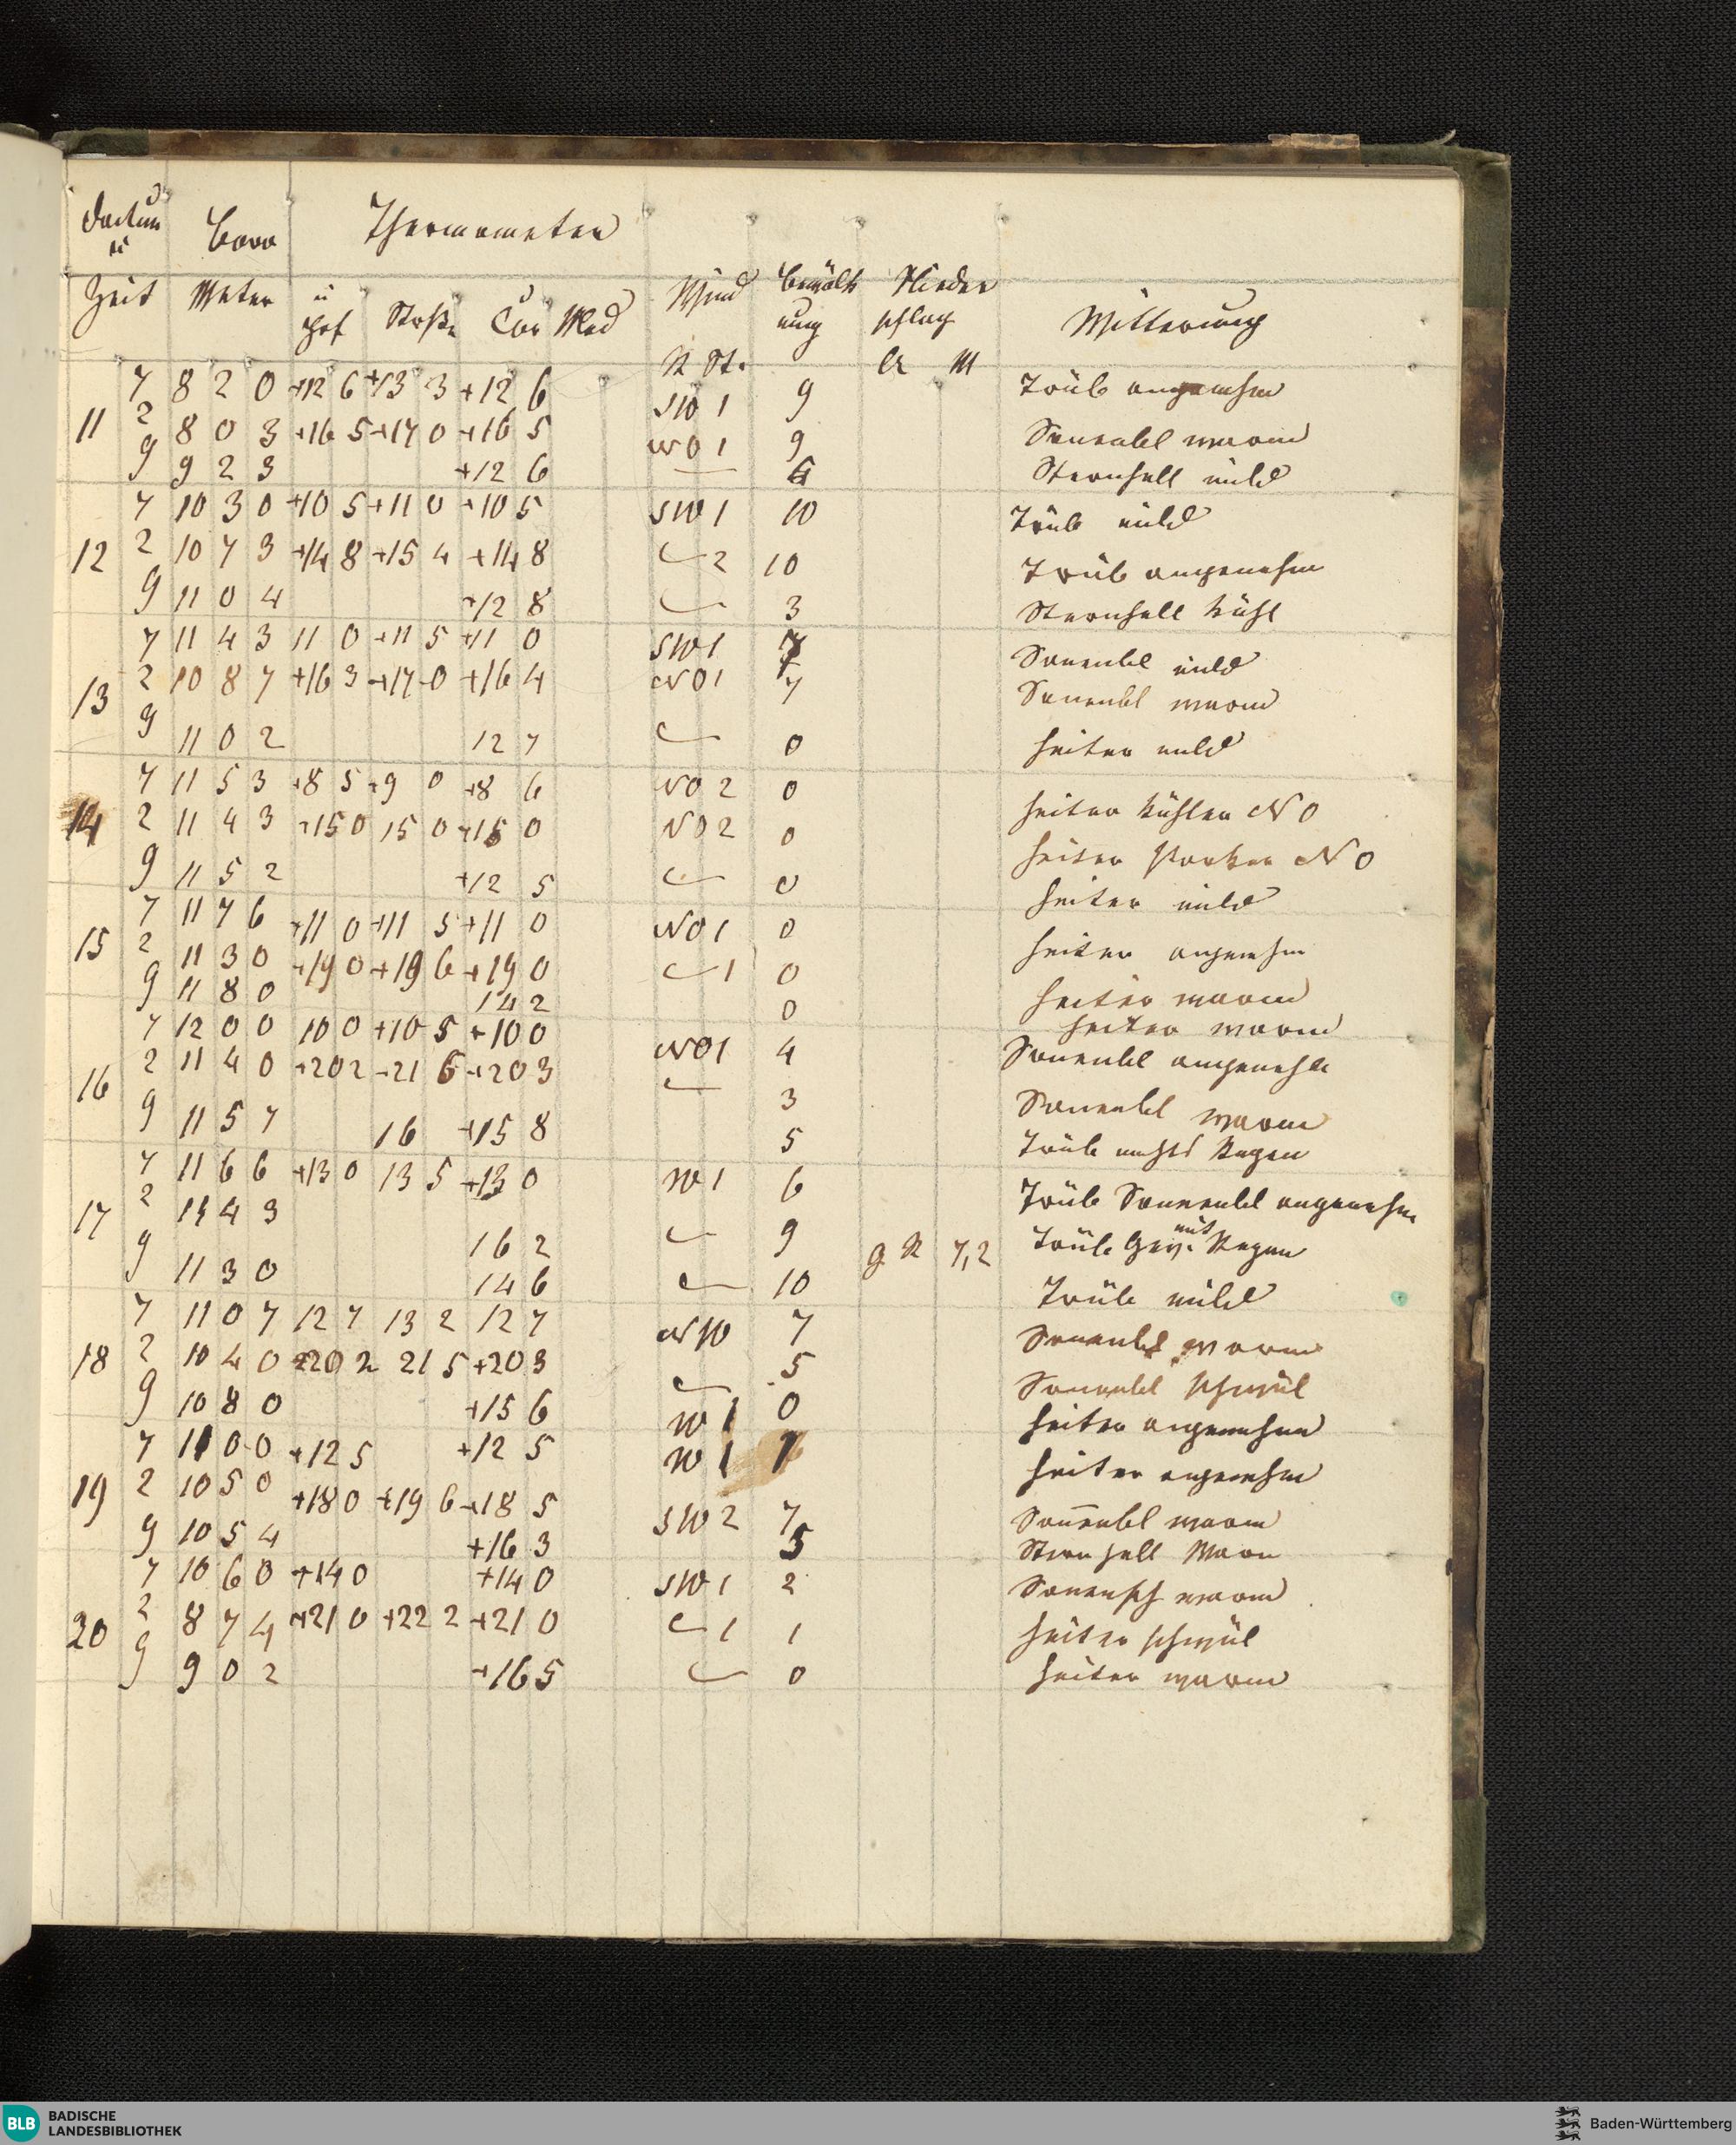 Datum Baro Thermometer
u
Zeit Meter Hof Straße Cor Med Wind Bewölk Nieder Witterung
ung schlag
R St. A M
7 8 2 0 +12 6 +13 3 +12 6 SW 1 9 Trüb angenehm
11 2 8 0 3 +16 5 +17 0 +16 5 NO 1 9 Sonenbl warm
9 9 2 3 +12 6 — 6 Sternhell mild
7 10 3 0 +10 5 +11 0 +10 5 SW 1 10 Trüb mild
12 2 10 7 3 +14 8 +15 4 +14 8 — 2 10 Trüb angenehm
9 11 0 4 +12 8 — 3 Sternhell kühl
7 11 4 3 11 0 +11 5 +11 0 SW 1 7 Sonenbl mild
13 2 10 8 7 +16 3 +17 0 +16 4 NO 1 7 Sonenbl warm
9 11 0 2 12 7 — 0 heiter mild
7 11 5 3 +8 5 +9 0 +8 6 NO 2 0 heiter kühler NO
14 2 11 4 3 +15 0 15 0 +15 0 NO 2 0 heiter starker NO
9 11 5 2 +12 5 — 0 heiter mild
7 11 7 6 +11 0 +11 5 +11 0 NO 1 0 heiter angenehm
15 2 11 3 0 +19 0 +19 6 +19 0 — 1 0 heiter warm
9 11 8 0 14 2 0 heiter warm
7 12 0 0 10 0 +10 5 +10 0 NO 1 4 Sonenbl angenehm
16 2 11 4 0 +20 2 +21 6 +20 3 — 3 Sonenbl warm
9 11 5 7 16 +15 8 5 Trüb nachts Regen
7 11 6 6 +13 0 13 5 +13 0 W 1 6 Trüb Sonnenbl angenehm
17 2 11 4 3 16 2 — 9 g R 7,2 Trüb Gew. mit Regen
9 11 3 0 14 6 — 10 Trüb mild
7 11 0 7 12 7 13 2 12 7 NW 7 Sonenbl warm
18 2 10 4 0 +20 2 21 5 +20 3 — 5 Sonenbl schwül
9 10 8 0 +15 6 W 1 0 heiter angenehm
7 11 0 0 +12 5 +12 5 W 1 1 heiter angenehm
19 2 10 5 0 +18 0 +19 6 +18 5 SW 2 7 Soñenbl warm
9 10 5 4 +16 3 5 Sternhell Warm
7 10 6 0 +14 0 +14 0 SW 1 2 Sonensch warm
20 2 8 7 4 +21 0 +22 2 +21 0 — 1 1 heiter schwül
9 9 0 2 +16 5 — 0 heiter warm
BLB BADISCHE
LANDESBIBLIOTHEK
Baden-Württemberg